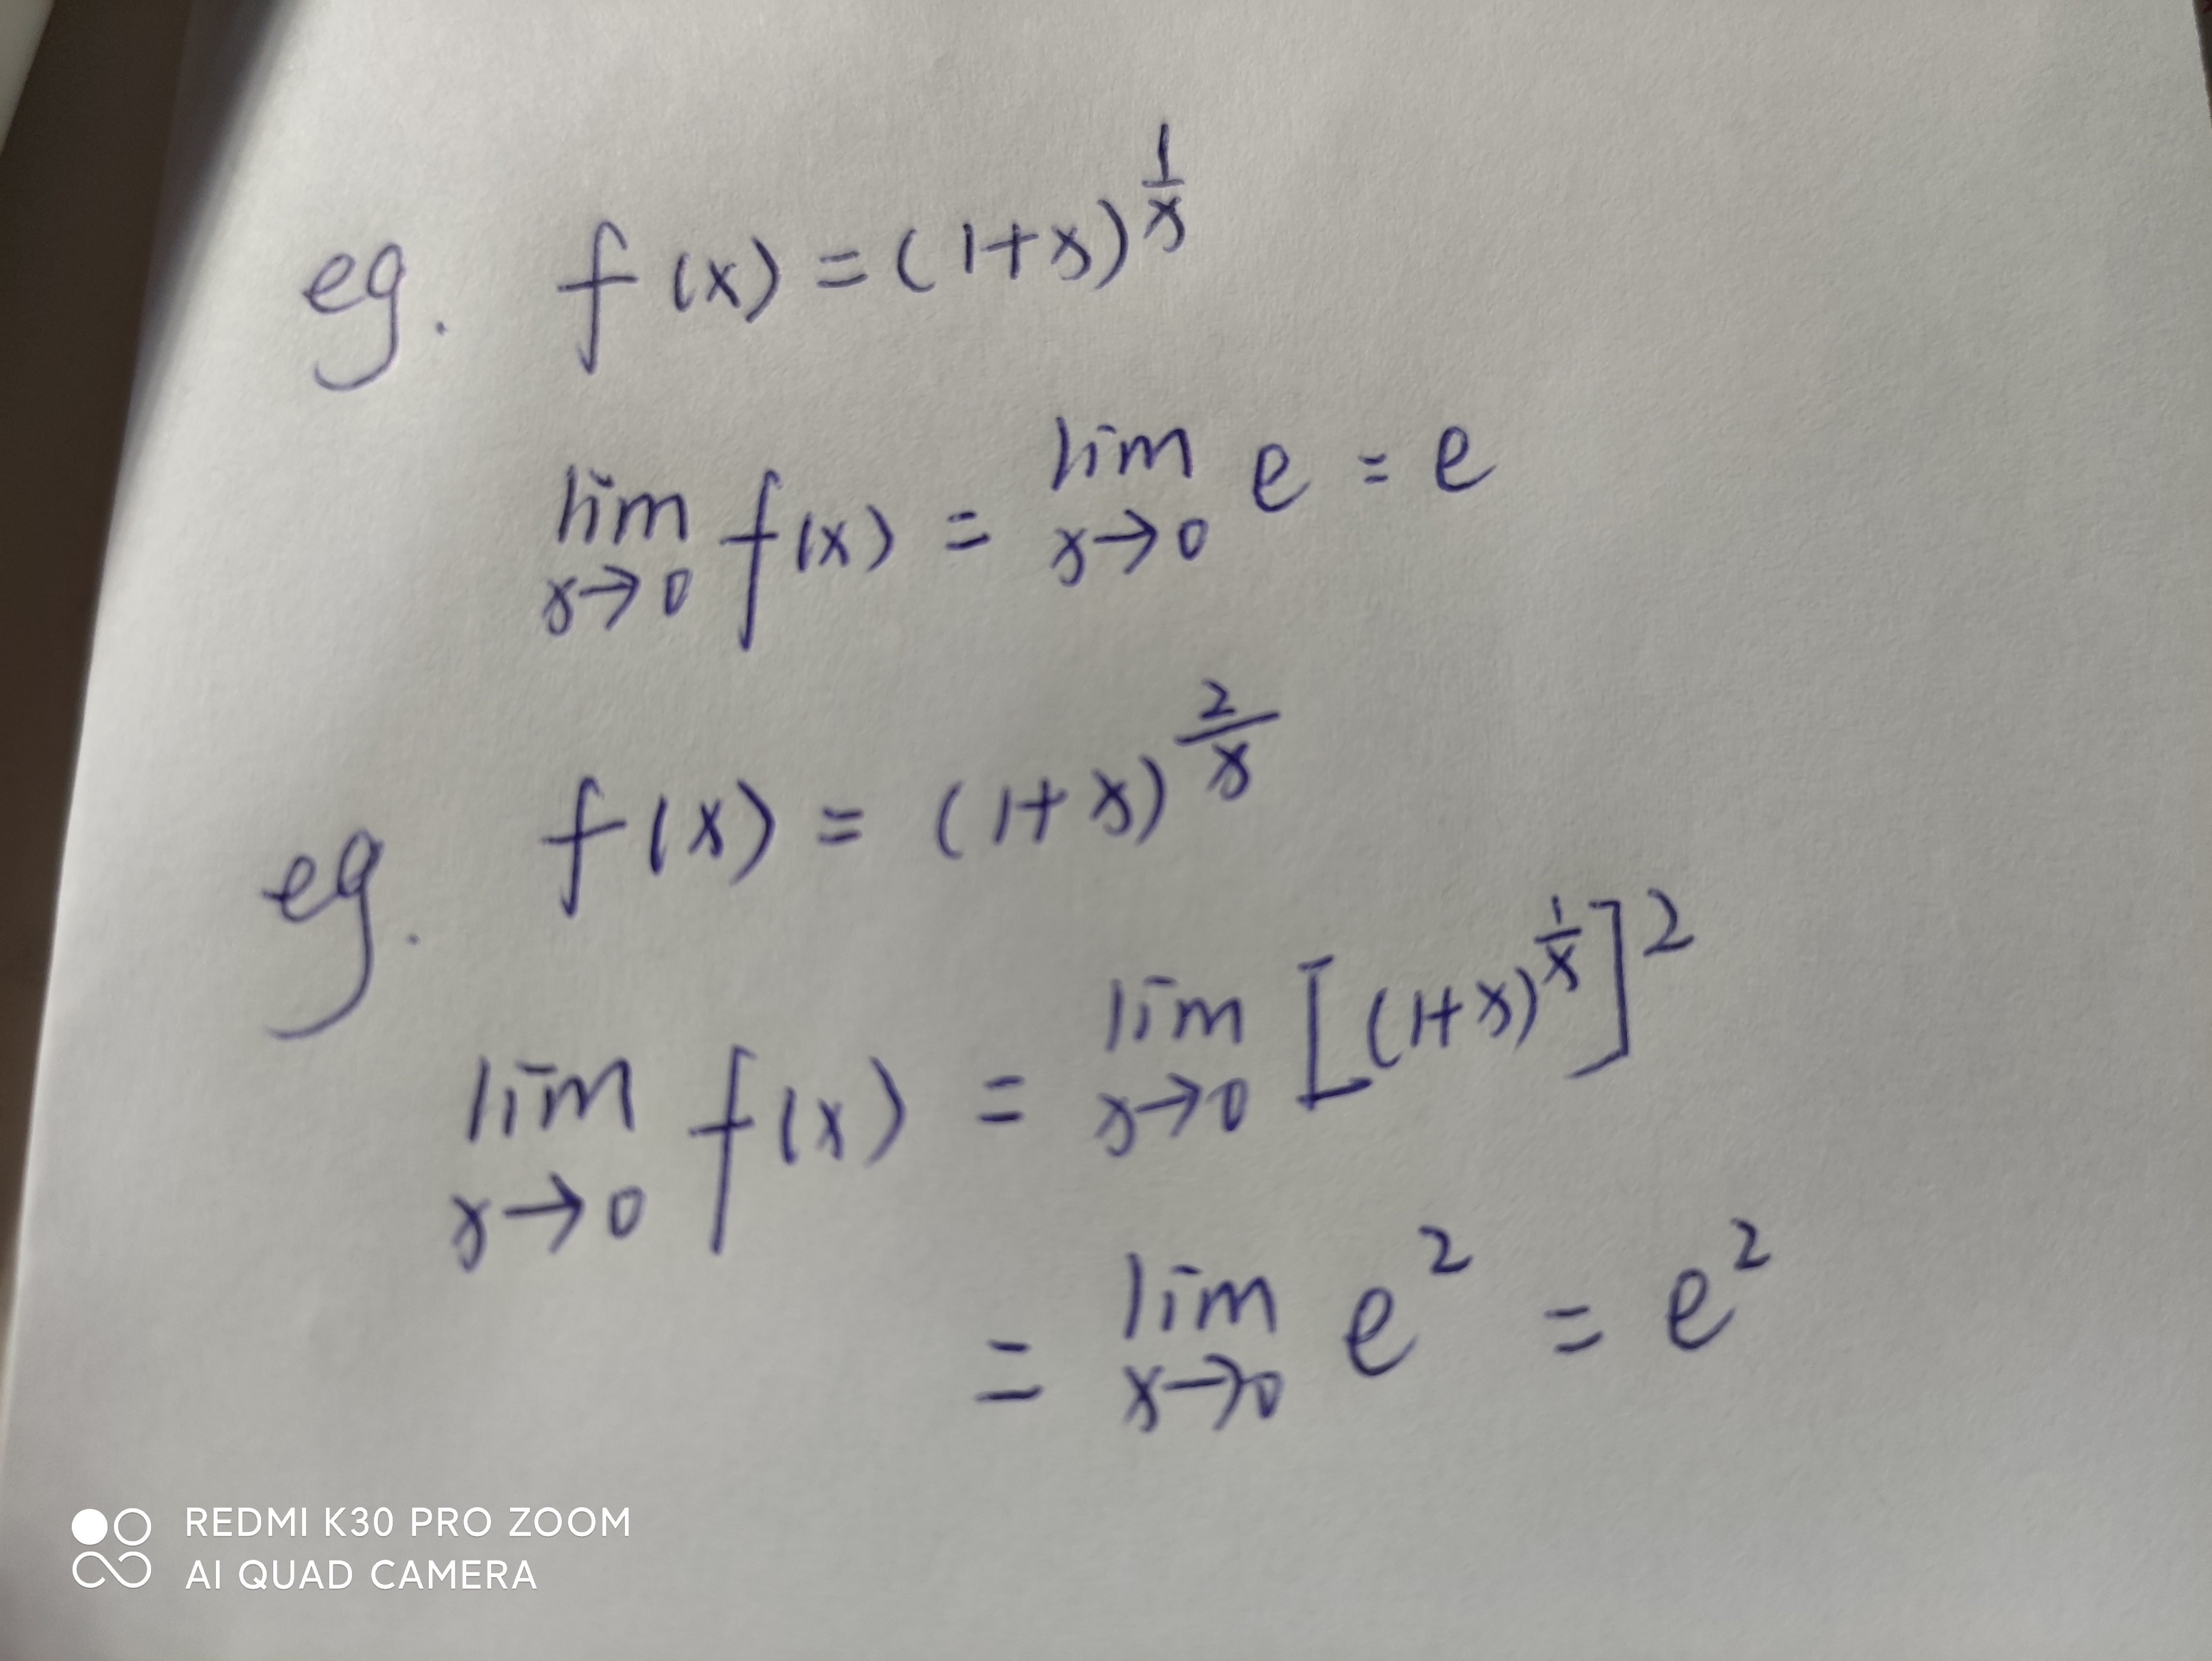 eg. f(x) = (1+x)^{\frac{1}{x}}
\lim_{x→0} f(x) = \lim_{x→0} e = e
eg. f(x) = (1+x)^{\frac{2}{x}}
\lim_{x→0} f(x) = \lim_{x→0} [(1+x)^{\frac{1}{x}}]^2
= \lim_{x→0} e^2 = e^2
REDMI K30 PRO ZOOM
AI QUAD CAMERA